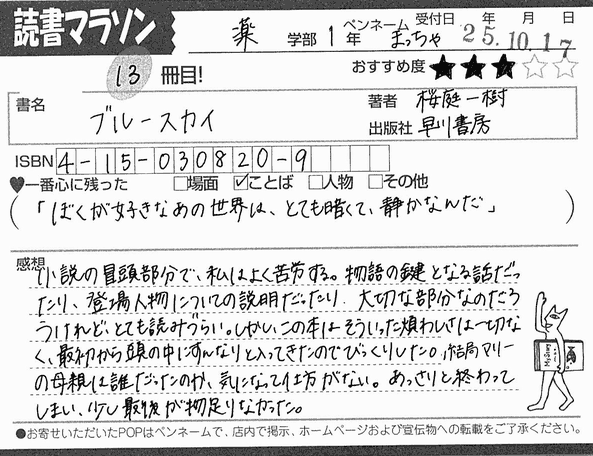 読書マラソン
薬 学部 1年 ペンネーム まっちゃ 受付日 25年10月17日
13 冊目! おすすめ度 ★★★☆☆
書名 ブルースカイ
著者 桜庭一樹
出版社 早川書房
ISBN 4-15-030820-9
♥一番心に残った □場面 ☑ことば □人物 □その他
(「ぼくが好きなあの世界は、とても暗くて、静かなんだ」)
感想
小説の冒頭部分で、私はよく苦労する。物語の鍵となる話だっ
たり、登場人物についての説明だったり、大切な部分なのだろ
うけれど、とても読みづらい。しかし、この本はそういった煩わしさは一切な
く、最初から頭の中にすんなりと入ってきたのでびっくりした。結局マリー
の母親は誰だったのか、気になって仕方がない。あっさりと終わって
しまい、少し最後が物足りなかった。
●お寄せいただいたPOPはペンネームで、店内で掲示、ホームページおよび宣伝物への転載をご了承ください。